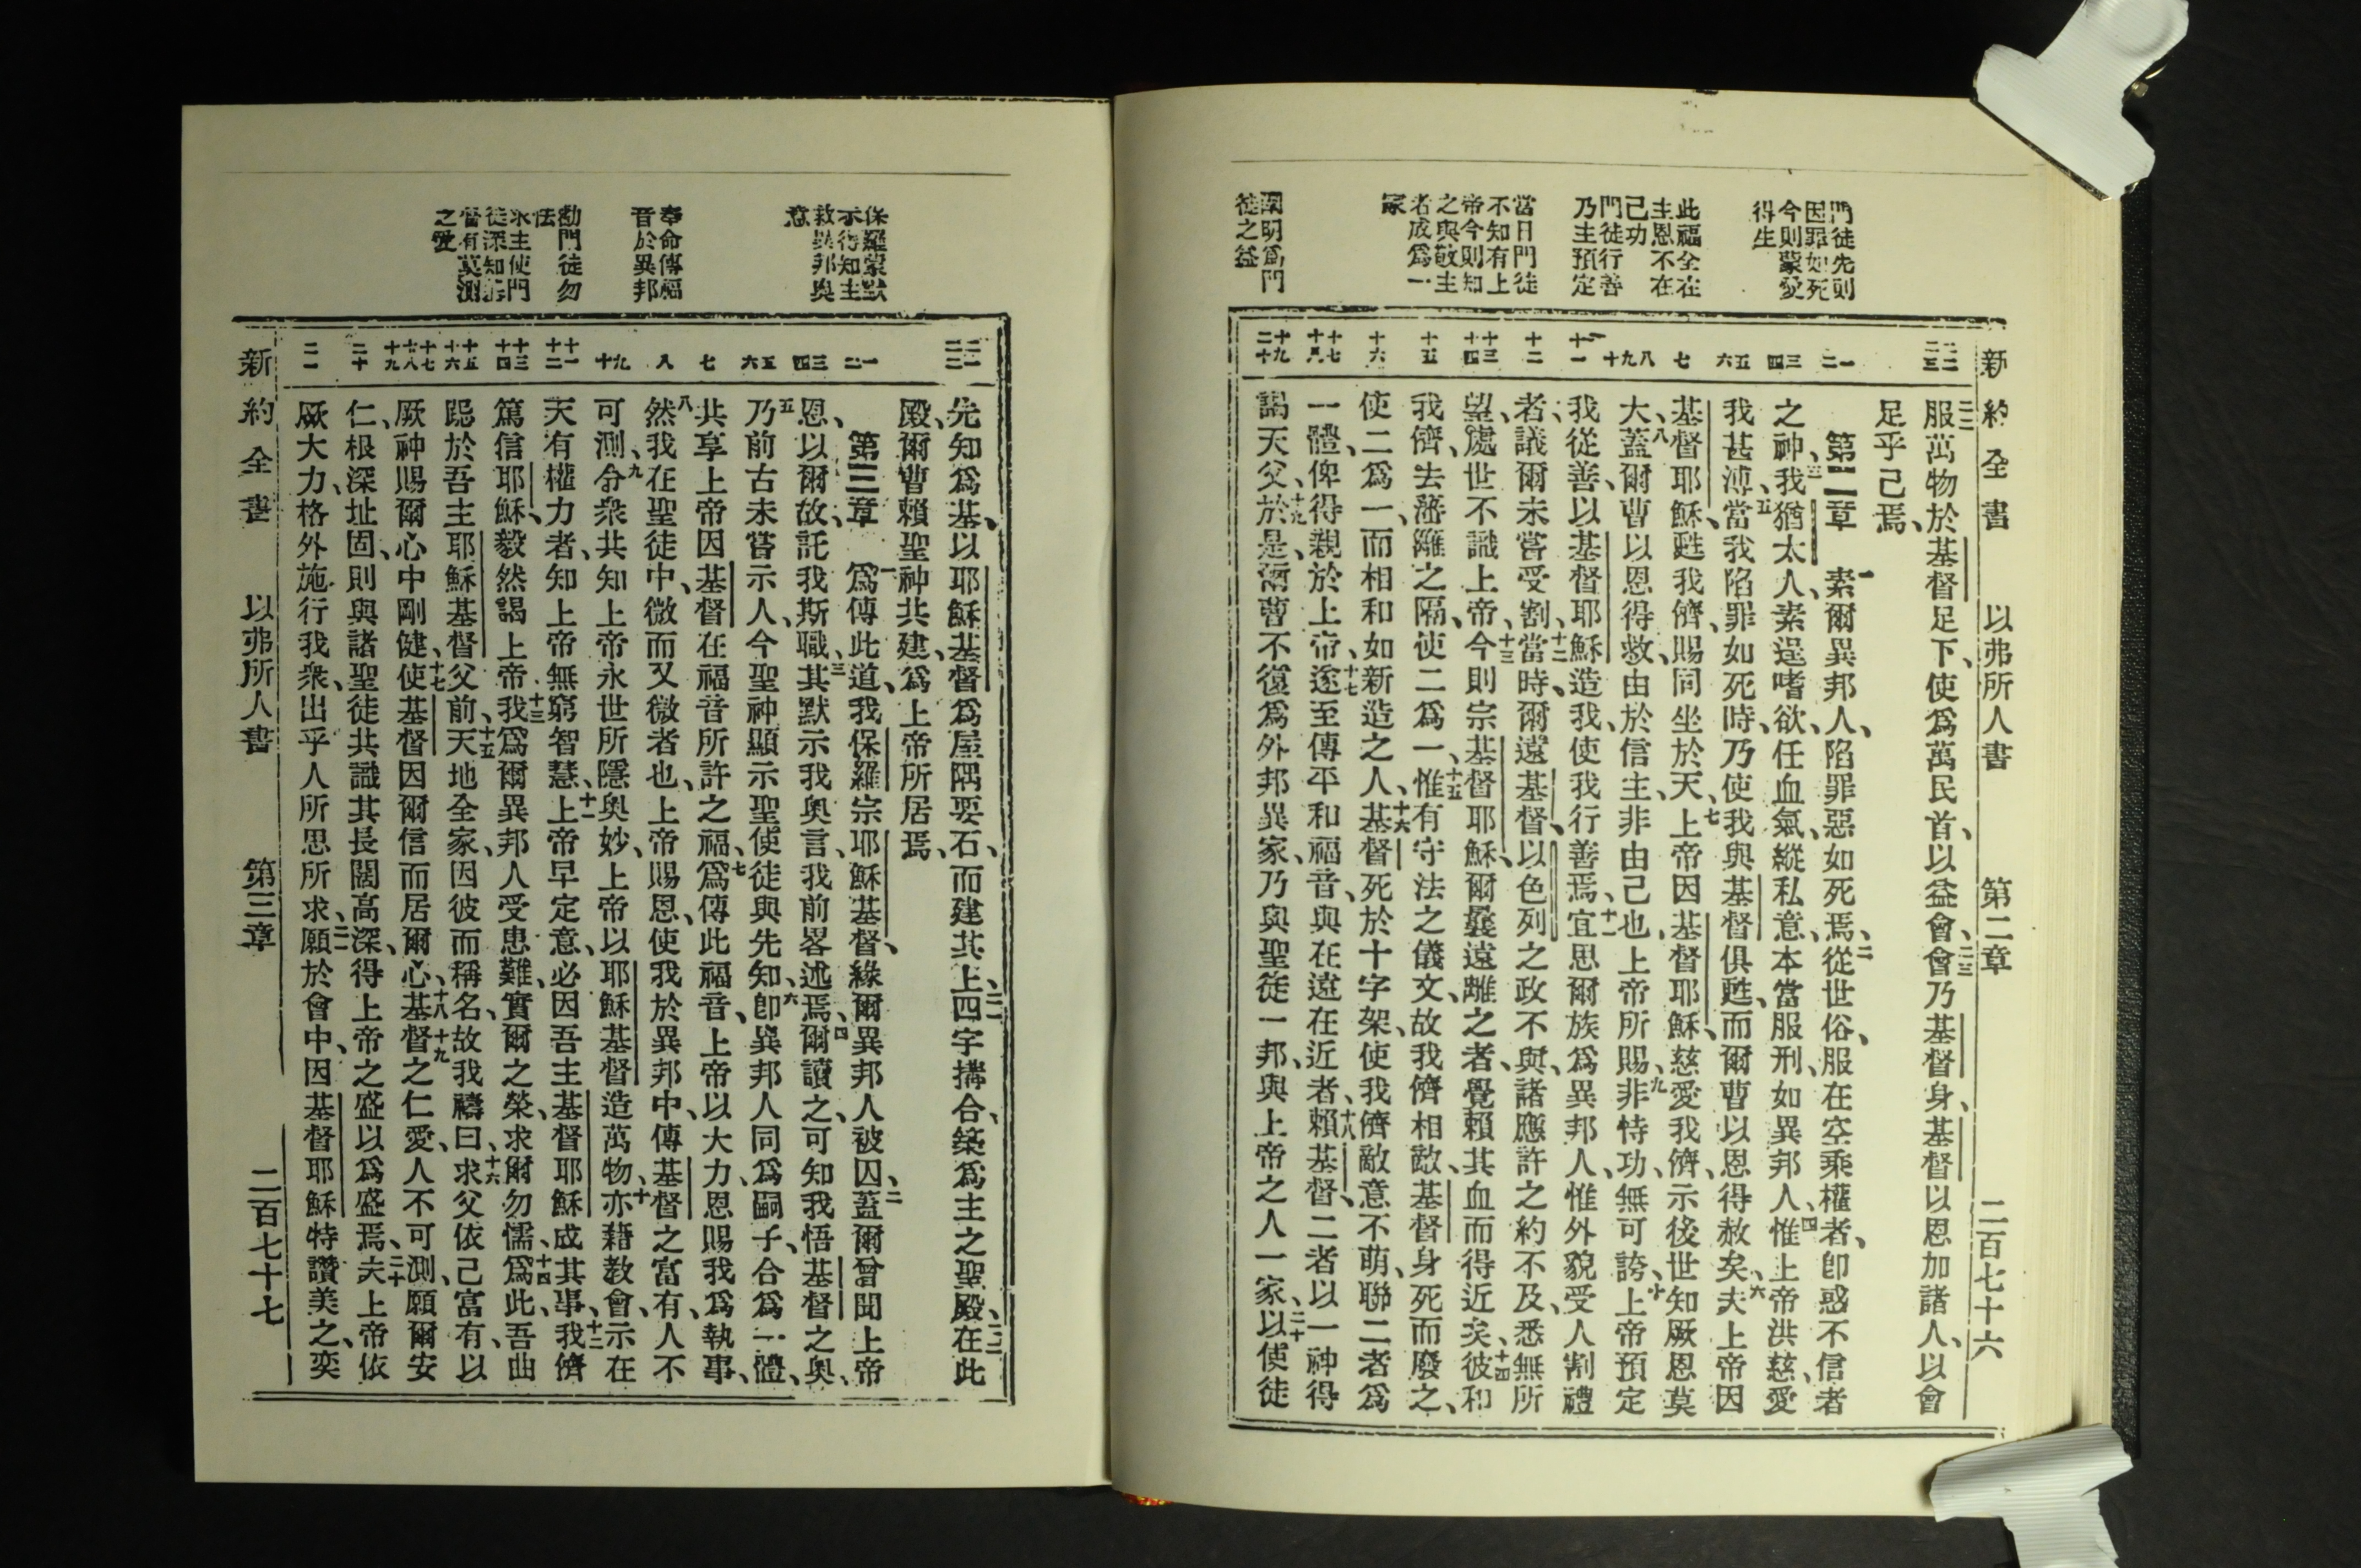 新約全書 以弗所人書 第二章 二百七十六
門徒先則
因罪如死
今則蒙愛
得生
此福全在
主恩不在
己功
門徒行善
乃主預定
當日門徒
不知有上
帝今則知
之與敬主
者成爲一
家
闡明爲門
徒之益
服萬物於基督足下、使爲萬民首、以益會、二三會乃基督身、基督以恩加諸人、以會
足乎己焉、
第二章 一素爾異邦人、陷罪惡如死焉、二從世俗、服在空乘權者、卽惑不信者
之神、三我猶太人、素逞嗜欲、任血氣、縱私意、本當服刑、如異邦人、四惟上帝洪慈、愛
我甚溥、五當我陷罪如死時、乃使我與基督俱甦、而爾曹以恩得赦矣、六夫上帝因
基督耶穌、甦我儕、賜同坐於天、七上帝因基督耶穌、慈愛我儕、示後世知厥恩莫
大、八蓋爾曹以恩得救、由於信主、非由己也、上帝所賜、九非恃功、無可誇、十上帝預定
我從善、以基督耶穌造我、使我行善焉、十一宜思爾族爲異邦人、惟外貌受人割禮
者、議爾未嘗受割、十二當時、爾遠基督、以色列之政不與、諸應許之約不及、悉無所
望、處世不識上帝、十三今則宗基督耶穌、爾曩遠離之者、覺賴其血而得近矣、十四彼和
我儕、去藩籬之隔、使二爲一、十五惟有守法之儀文、故我儕相敵、基督身死而廢之、
使二爲一、而相和如新造之人、十六基督死於十字架、使我儕敵意不萌、聯二者爲
一體、俾得親於上帝、十七遂至傳平和福音、與在遠在近者、十八賴基督、二者以一神得
謁天父、十九於是、爾曹不復爲外邦異家、乃與聖徒一邦、與上帝之人一家、二十以使徒
先知爲基、以耶穌基督爲屋隅要石、而建其上、二一四宇搆合、築爲主之聖殿、二二在此
殿、爾曹賴聖神共建、爲上帝所居焉、
第三章 一爲傳此道、我保羅宗耶穌基督、緣爾異邦人被囚、二蓋爾曾聞上帝
恩、以爾故、託我斯職、三其默示我奧言、我前畧述焉、四爾讀之、可知我悟基督之奧、
五乃前古未嘗示人、今聖神顯示聖使徒與先知、六卽異邦人同爲嗣子、合爲一體、
共享上帝因基督在福音所許之福、七爲傳此福音、上帝以大力恩賜我爲執事、
八然我在聖徒中、微而又微者也、上帝賜恩、使我於異邦中、傳基督之富有、人不
可測、九令衆共知上帝永世所隱奧妙、上帝以耶穌基督造萬物、十亦藉教會、示在
天有權力者、知上帝無窮智慧、十一上帝早定意、必因吾主基督耶穌成其事、十二我儕
篤信耶穌、毅然謁上帝、十三我爲爾異邦人受患難、實爾之榮、求爾勿懦、十四爲此、吾曲
跽於吾主耶穌基督父前、十五天地全家、因彼而稱名、故我禱曰、十六求父依己富有、以
厥神賜爾心中剛健、十七使基督因爾信而居爾心、十八基督十九之仁愛、人不可測、願爾安
仁、根深址固、則與諸聖徒共識其長闊高深、得上帝之盛以爲盛焉、二十夫上帝依
厥大力、格外施行我衆、出乎人所思所求、二一願於會中、因基督耶穌特讚美之、奕
保羅蒙默
示得知主
救異邦奧
意
奉命傳福
音於異邦
勸門徒勿
怯
求主使門
徒深知基
督有莫測
之愛
新約全書 以弗所人書 第三章 二百七十七